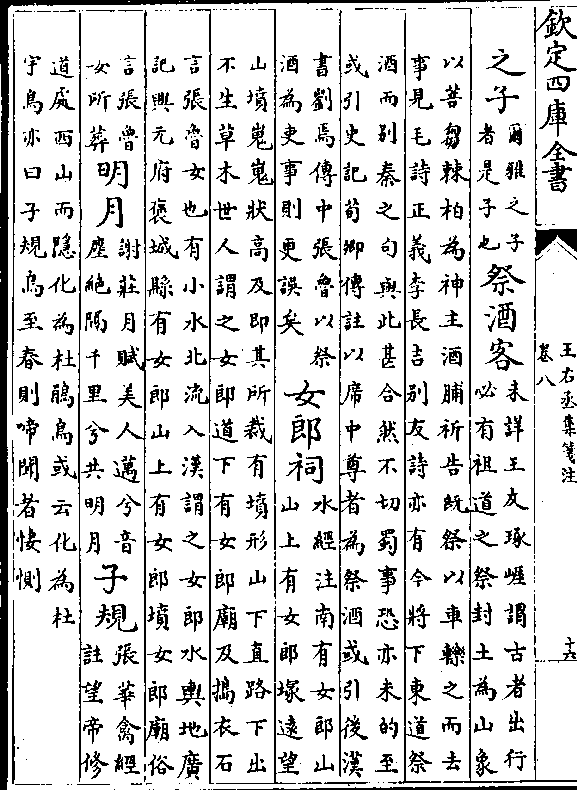 欽定四庫全書
王右丞集箋注
卷八
十六
之子爾雅之子者是子也祭酒客未詳王友琢崕謂古者出行必有祖道之祭封土為山象
以菩芻棘柏為神主酒脯祈告既祭以車轢之而去
事見毛詩正義李長吉别友詩亦有今將下東道祭
酒而别秦之句與此甚合然不切蜀事恐亦未的至
或引史記荀卿傳註以席中尊者為祭酒或引後漢
書劉焉傳中張魯以祭酒為吏事則更誤矣女郎祠水經注南有女郎山山上有女郎塚遠望
山墳嵬嵬狀高及即其所裁有墳形山下直路下出
不生草木世人謂之女郎道下有女郎廟及搗衣石
言張魯女也有小水北流入漢謂之女郎水輿地廣
記興元府褒城縣有女郎山上有女郎墳女郎廟俗
言張魯女所葬明月謝莊月賦美人邁兮音塵絶隔千里兮共明月子規張華禽經註望帝修
道處西山而隱化為杜鵑鳥或云化為杜
宇鳥亦曰子規鳥至春則啼聞者悽惻